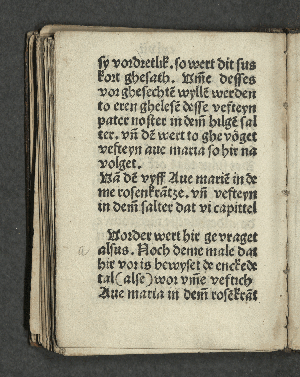 sy vordretlik. so wert dit sus
kort ghesath. Vm̄e desses
vor ghesechtē wyllē werden
to eren ghelesē desse vefteyn
pater noster in dem̄ hilgē sal
ter. vn̄ dē wert to ghe vöget
vefteyn aue maria so hir na
volget.
Vā dē vyff Aue mariē in de
me rosenkrātze. vn̄ vefteyn
in dem̄ salter dat vi capittel
Vorder wert hir ge vraget
alsus. Noch deme male dat
hir vor is bewyset de enckede
tal (alse) wor vm̄e veftich
Aue maria in dem̄ rosēkrāt